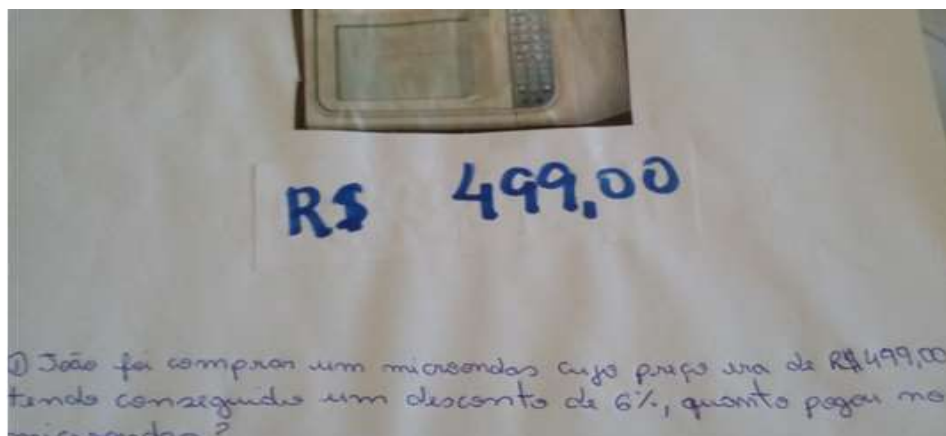 R$ 499,00
① João foi comprar um microondas cujo preço era de R$499,00
tendo conseguido um desconto de 6%, quanto pagou no
microondas?